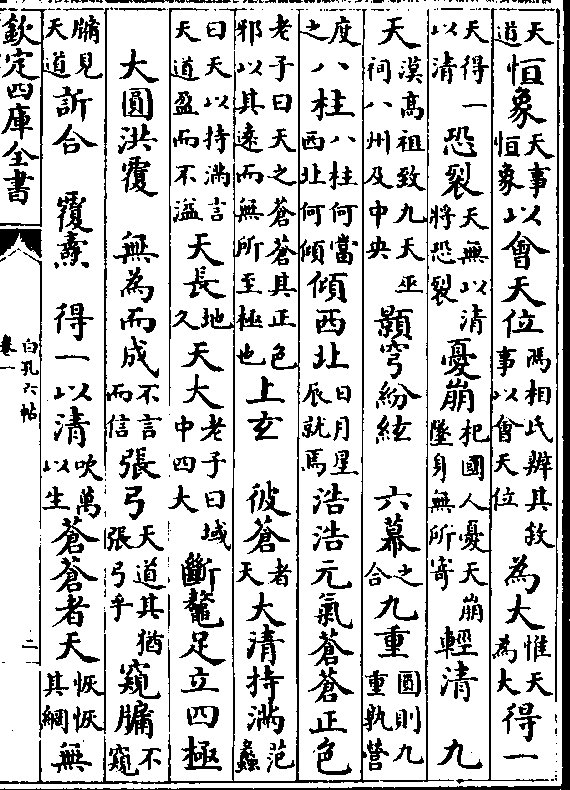 天道恒象天事恒象以會天位馮相氏辨其敘事以會天位為大惟天為大得一
天得一以清恐裂天無以清將恐裂憂崩杞國人憂天崩墜身無所寄輕清 九
天漢高祖致九天巫祠八州及中央 顥穹紛紜 六幕之合九重圓則九重孰營
度之八柱八柱何當西北何傾傾西北日月星辰就焉浩浩元氣蒼蒼正色
老子曰天之蒼蒼其正色邪以其遠而無所至極也上玄 彼蒼者天大清持滿范蠡
曰天以持滿言天道盈而不溢天長地久天大老子曰域中四大斷鼇足立四極
大圓洪覆 無為而成不言而信張弓天道其猶張弓乎窺牖不窺
牖見天道訢合 覆燾 得一以清吹萬以生蒼蒼者天恢恢其網無
欽定四庫全書
白孔六帖
卷一
二